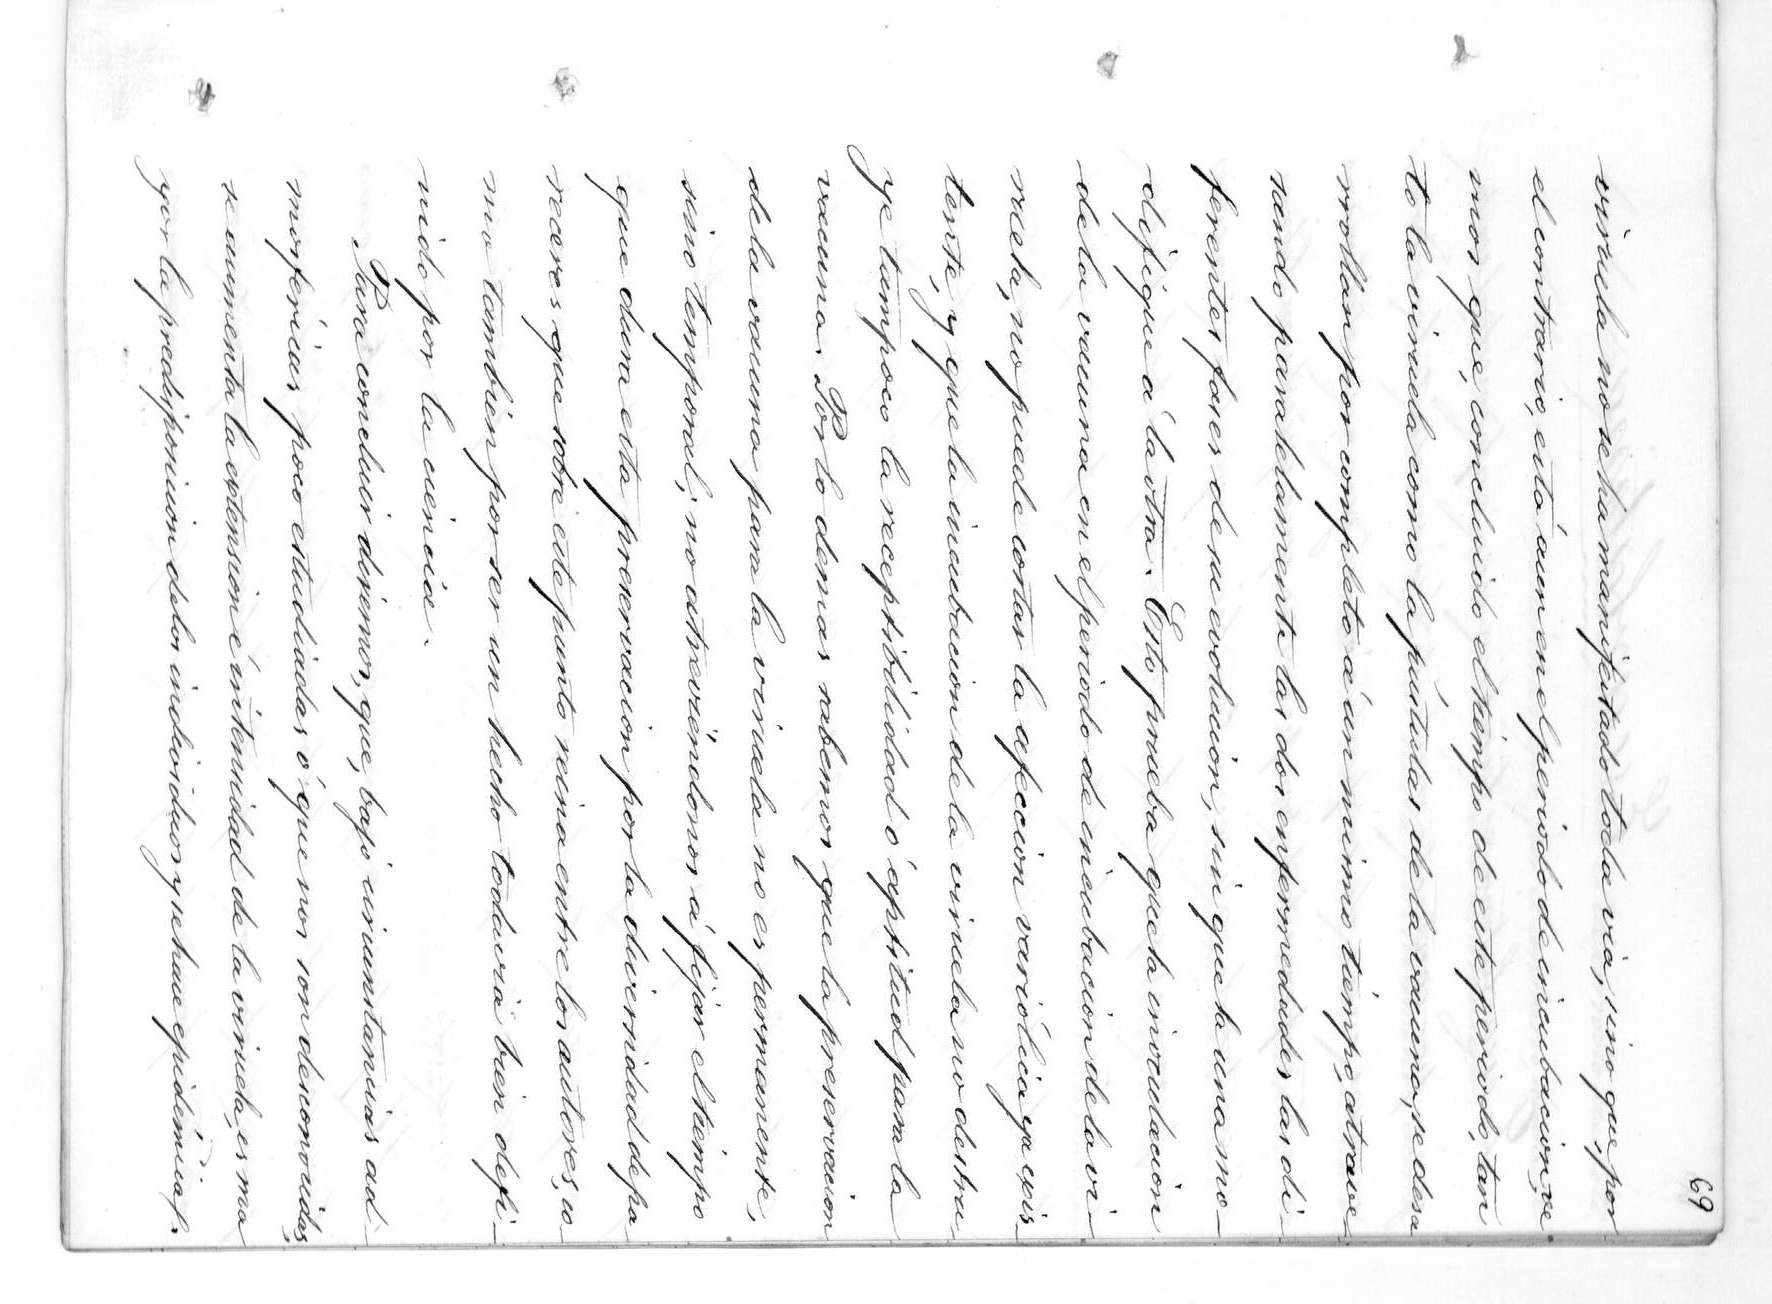 69
viruela no se ha manifestado toda via, sino que, por
el contrario, está áun en el periodo de incubacion, ve
mos que, concluido el tiempo de este periodo, tan
to la viruela como la pústulas de la vacuna, se desa
rrollan por completo á un mismo tiempo, atrave
sando paralelamente las dos enfermedades las di-
ferentes fases de su evolucion, sin que la una mo-
difique á la otra. Esto prueba que la inoculacion
de la vacuna en el periodo de incubacion de la vi-
ruela, no puede cortar la afeccion variólica ya exis-
tente, y que la incubacion de la viruela no destru
ye tampoco la receptibilidad ó aptitud para la
vacuna. Por lo demas sabemos que la preservacion
de la vacuna para la viruela no es permanente,
sino temporal; no atreviéndonos á fijar el tiempo
que dura esta preservacion por la diversidad de pa
receres que sobre este punto reina entre los autores, co
mo tambien por ser un hecho todavia bien defi-
nido por la ciencia.
Para concluir diremos, que, bajo circunstancias ad-
mosféricas poco estudiadas ó que nos son desconocidas,
se aumenta la extension é intensidad de la viruela, es ma
yor la predisposicion de los individuos y se hace epidémica.